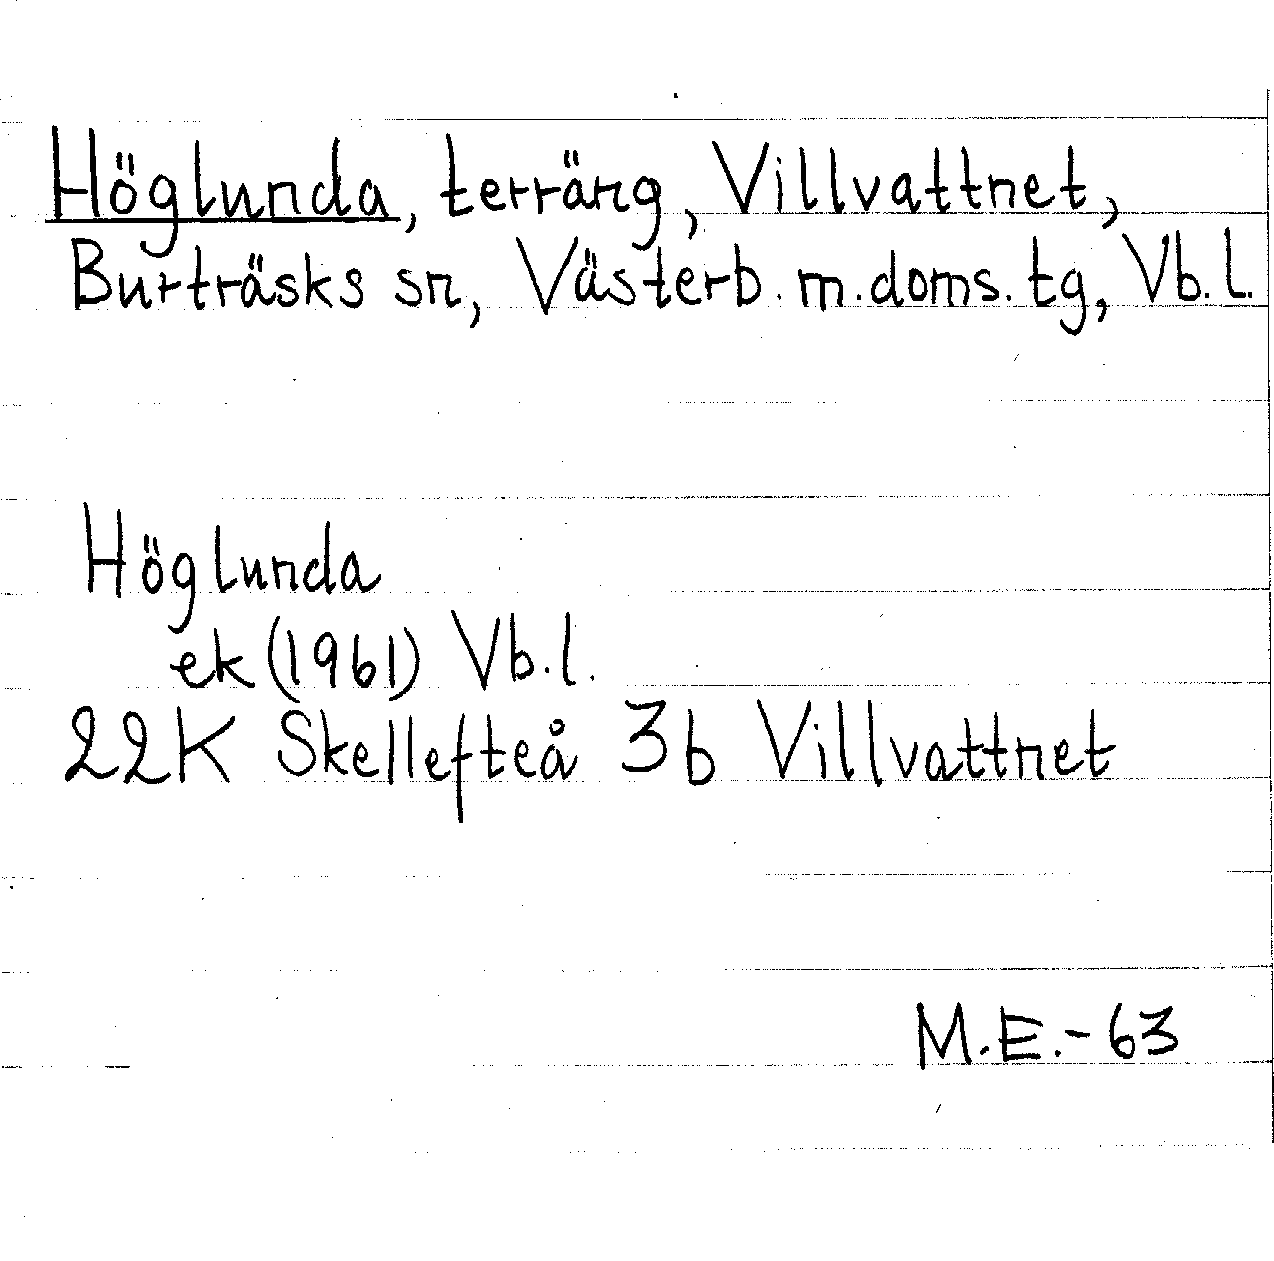 Höglunda, terräng, Villvattnet,
Burträsks sn, Västerb. m. doms. tg, Vb. l.
Höglunda
ek (1961) Vb. l.
22K Skellefteå 3b Villvattnet
M.E.-63